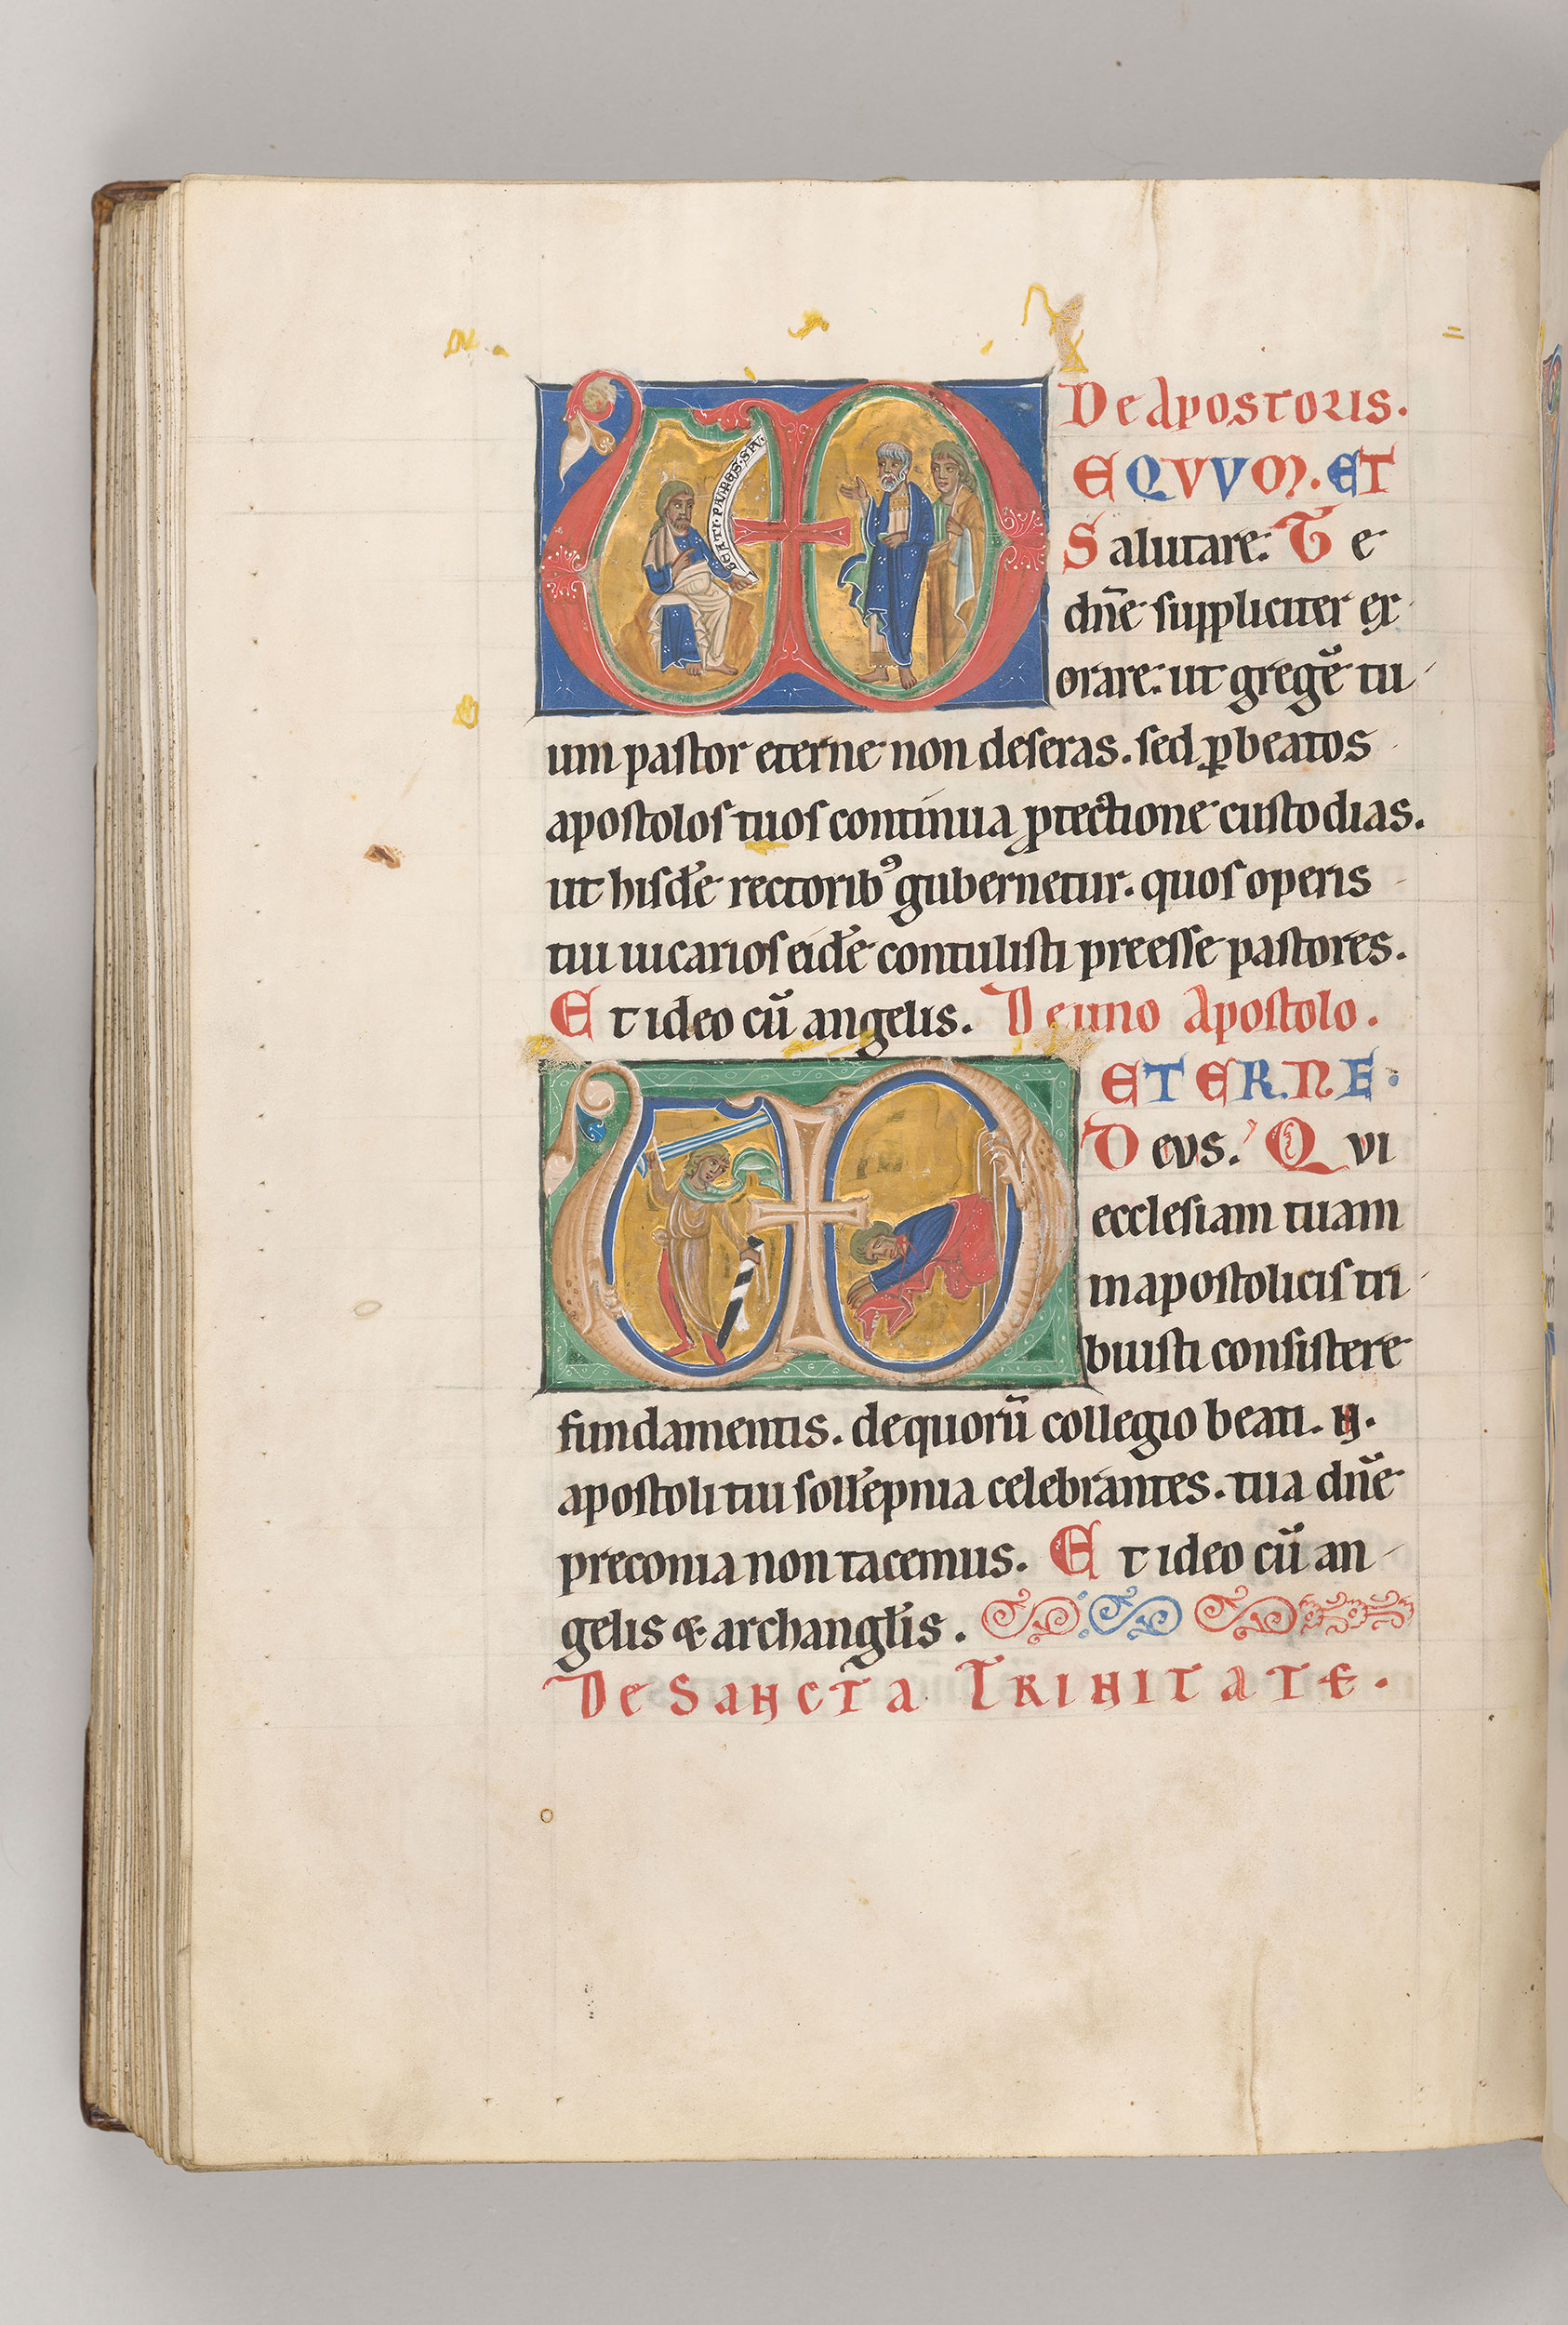 De apostolis.
EQVVM. ET
Salutare: Te
dn̄e suppliciter ex
orare: ut gregē tu
um pastor eterne non deseras. sed ꝑ beatos
apostolos tuos continua ꝓtectione custodias.
ut hisdē rectoribꝰ gubernetur. quos operis
tui uicarios eidē contulisti preesse pastores.
Et ideo cū angelis. De uno Apostolo.
ETERNE.
Deus. Qui
ecclesiam tuam
in apostolicis tri
buisti consistere
fundamentis. de quorū collegio beati. N.
apostoli tui sollēpnia celebrantes. tua dn̄e
preconia non tacemus. Et ideo cū an
gelis & archangl̄is.
De Sancta TRINITATE.
BEATI. PAUPES. SPU.